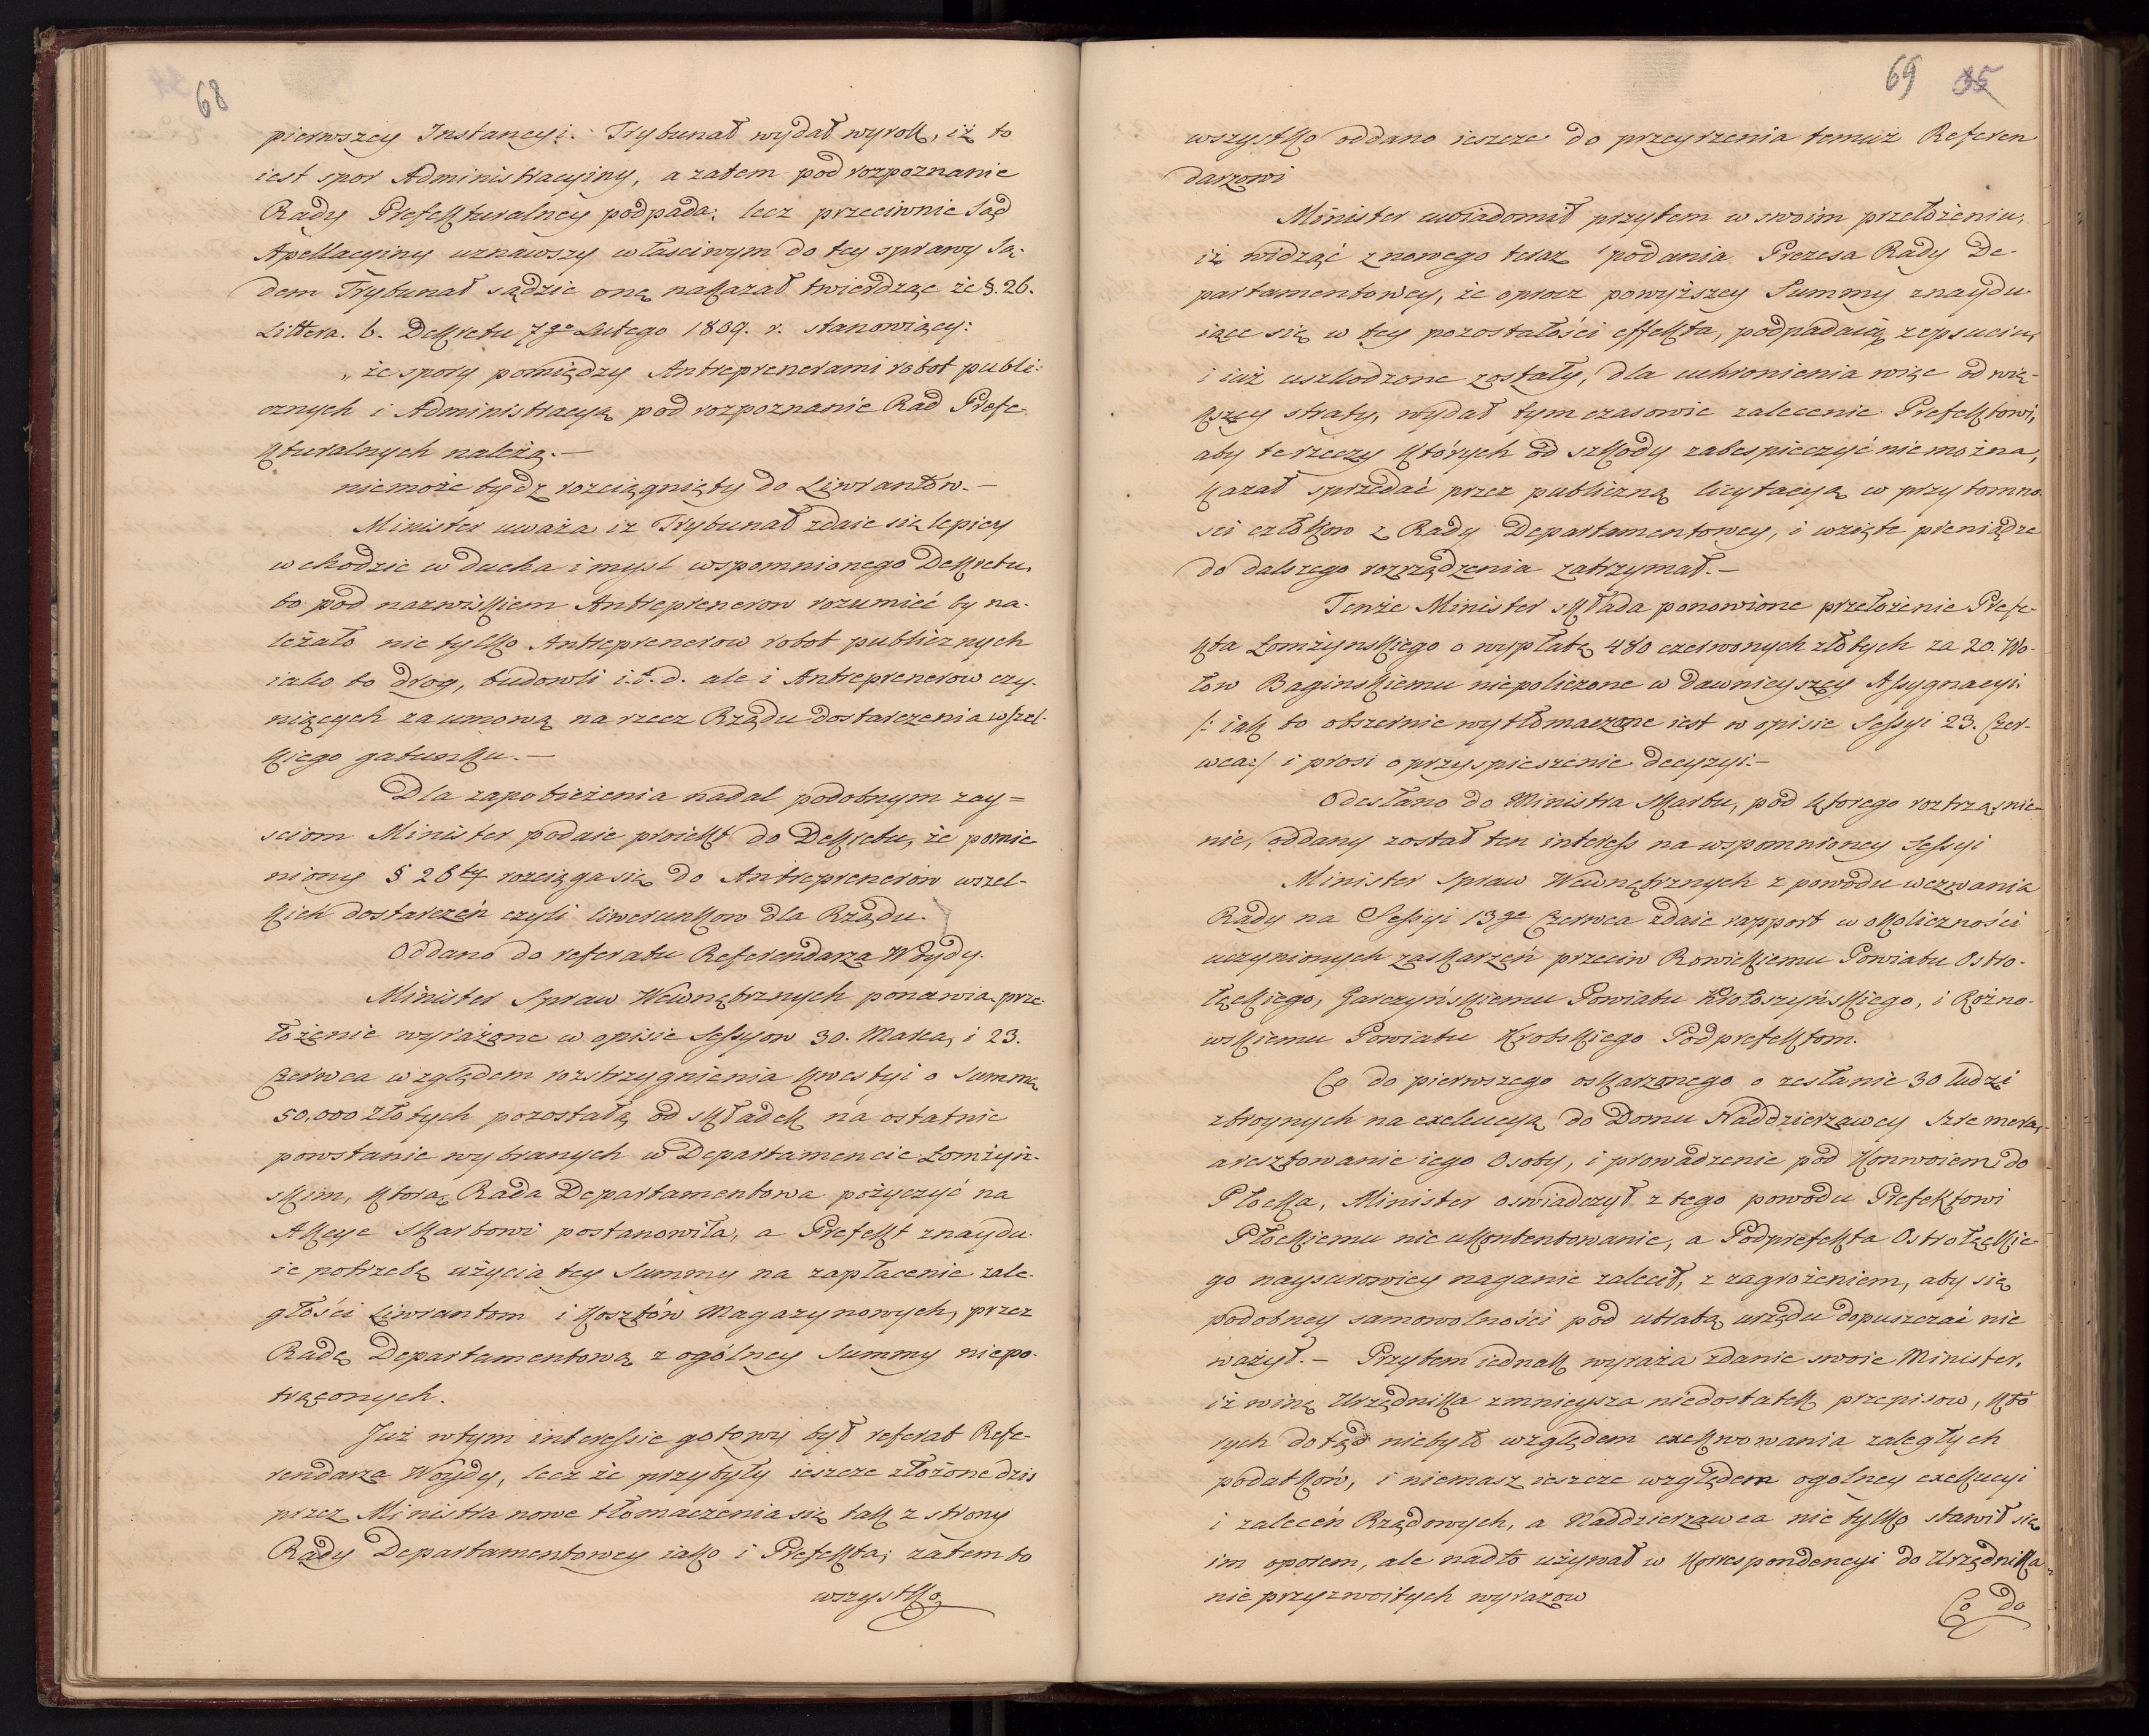 68
pierwszey Instancyi. Trybunał wydał wyrok, iż to
iest spor Administracyiny, a zatem pod rozpoznanie
Rady Prefekturalney podpada; lecz przeciwnie Sąd
Apellacyiny uznawszy właściwym do tey sprawy Są-
dem Trybunał sądzić onę nakazał twierdząc że §. 26.
Littera. b. Dekretu 7go Lutego 1809. r. stanowiący:
„że spory pomiędzy Antreprenerami robot publi-
cznych i Administracyą pod rozpoznanie Rad Prefe-
kturalnych należą.—
niemoże bydz rozciągnięty do Liwrantów.—
Minister uważa iż Trybunał zdaie się lepiey
wchodzić w ducha i mysl wspomnionego Dekretu,
bo pod nazwiskiem Antreprenerow rozumieć by na-
leżało nie tylko Antreprenerow robot publicznych
iako to drog, budowli i.t.d. ale i Antreprenerow czy-
niących za umową na rzecz Rządu dostarczenia wszel-
kiego gatunku.—
Dla zapobieżenia nadal podobnym zay=
sciom Minister podaie proiekt do Dekretu, że pomie-
niony § 26ty rozciąga się do Antreprenerów wszel-
kich dostarczeń czyli liwerunkow dla Rządu.
Oddano do referatu Referendarza Woydy.
Minister Spraw Wewnętrznych ponawia prze-
łożenie wyrażone w opisie Sessyow 30. Marca, i 23.
Czerwca względem rozstrzygnienia kwestyi o Summę
50,000 złotych pozostałą od składek na ostatnie
powstanie wybranych w Departamencie Łomżyń-
skim, ktorą Rada Departamentowa pożyczyć na
Akcye Skarbowi postanowiła, a Prefekt znaydu-
ie potrzebę użycia tey Summy na zapłacenie zale-
głości Liwrantom i Kosztów Magazynowych, przez
Radę Departamentową z ogólney Summy niepo-
trąconych.
Już w tym interessie gotowy był referat Refe-
rendarza Woydy, lecz że przybyły ieszcze złożone dziś
przez Ministra nowe tłomaczenia się tak z strony
Rady Departamentowey iako i Prefekta; zatem to
wszystko
69 35
wszystko oddano ieszcze do przeyrzenia temuż Referen
darzowi
Minister uwiadomił przytem w swoim przełożeniu,
iż widząc z nowego teraz podania Prezesa Rady De-
partamentowey, że oprocz powyższey Summy znaydu-
iące się w tey pozostałości effekta, podpadaią zepsuciu,
i iuż uszkodzone zostały, dla uchronienia więc od wię-
kszey straty, wydał tymczasowie zalecenie Prefektowi,
aby te rzeczy których od szkody zabespieczyć nie można,
kazał sprzedać przez publiczną licytacyą w przytomno-
ści członkow z Rady Departamentowey, i wzięte pieniądze
do dalszego rozrządzenia zatrzymał.—
Tenże Minister składa ponowione przełożenie Prefe-
kta Łomżynskiego o wypłatę 480 czerwonych złotych za 20. Wo-
łow Baginskiemu niepoliczone w dawnieyszey Assygnacyi.
/: iak to obszernie wytłomaczone iest w opisie Sessyi 23. Czer-
wca:/ i prosi o przyspieszenie decyzyi:—
Odesłano do Ministra Skarbu, pod ktorego roztrząśnie-
nie, oddany został ten interess na wspomnioney Sessyi
Minister Spraw Wewnętrznych z powodu wezwania
Rady na Sessyi 13go Czerwca zdaie rapport w okoliczności
uczynionych zaskarżeń przeciw Rowickiemu Powiatu Ostro-
łęckiego, Garczyńskiemu Powiatu Krotoszyńskiego, i Rożno-
wskiemu Powiatu Krobskiego Podprefektom.
Co do pierwszego oskarżonego o zesłanie 30 ludzi
zbroynych na exekucyą do Domu Naddzierżawcy Szremera,
aresztowanie iego Osoby, i prowadzenie pod Konwoiem do
Płocka, Minister oswiadczył z tego powodu Prefektowi
Płockiemu nieukontentowanie, a Podprefekta Ostrołęckie-
go naysurowiey naganić zalecił, z zagrożeniem, aby się
podobney samowolności pod utratą urzędu dopuszczać nie
ważył.— Przytem iednak wyraża zdanie swoie Minister,
iż winę Urzędnika zmnieysza niedostatek przepisow, któ
rych dotąd niebyło względem exekwowania zaległych
podatków, i niemasz ieszcze względem ogolney exekucyi
i zaleceń Rządowych, a Naddzierzawca nie tylko stawił się
im oporem, ale nadto używał w Korrespondencyi do Urzędnika
nieprzyzwoitych wyrazow
Co do